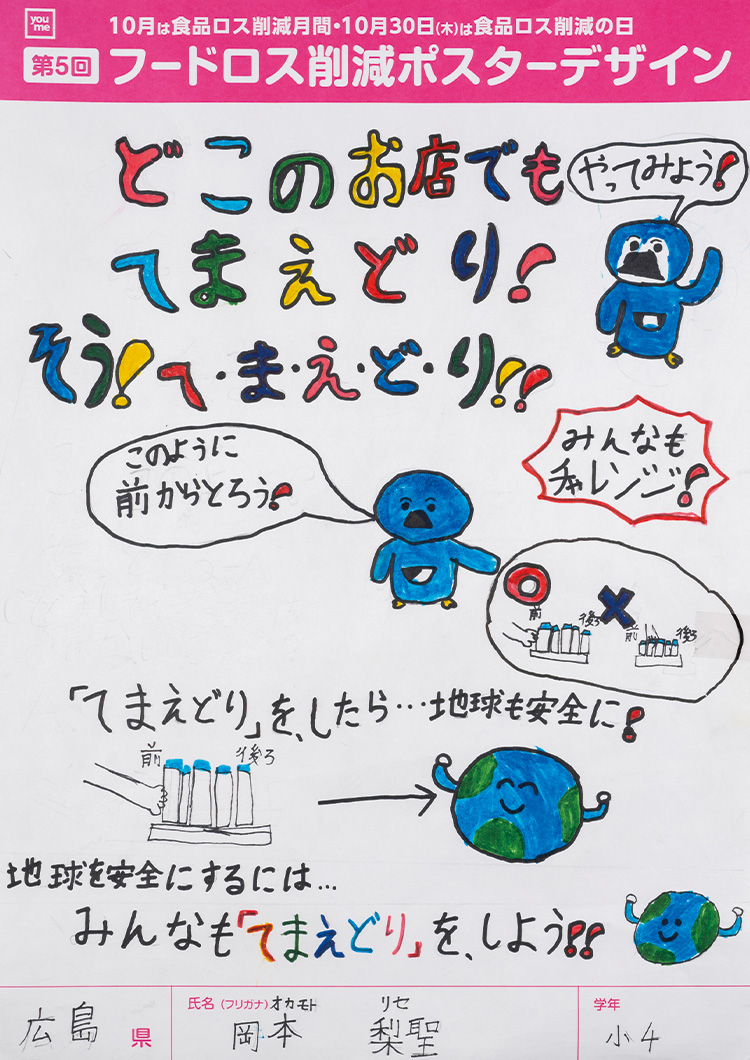 you me
10月は食品ロス削減月間・10月30日(木)は食品ロス削減の日
第5回 フードロス削減ポスターデザイン
どこのお店でも
やってみよう!
てまえどり!
そう!て・ま・え・ど・り!!
みんなも
チャレンジ!
このように
前からとろう!
前 後ろ
前 後ろ
「てまえどり」を、したら…地球も安全に!
前 後ろ
地球を安全にするには…
みんなも「てまえどり」を、しよう!!
広島 県
氏名(フリガナ) オカモト リセ
岡本 梨聖
学年
小4